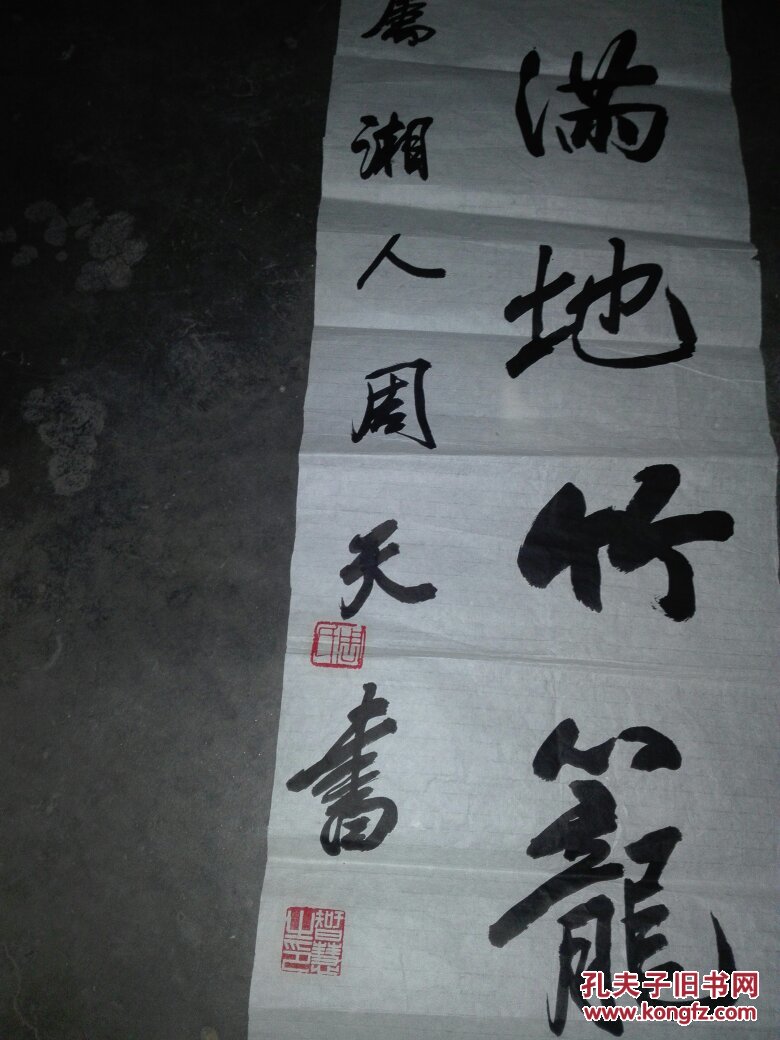 满地竹籠
為湘人周天書
智慧之印
孔夫子旧书网
www.kongfz.com